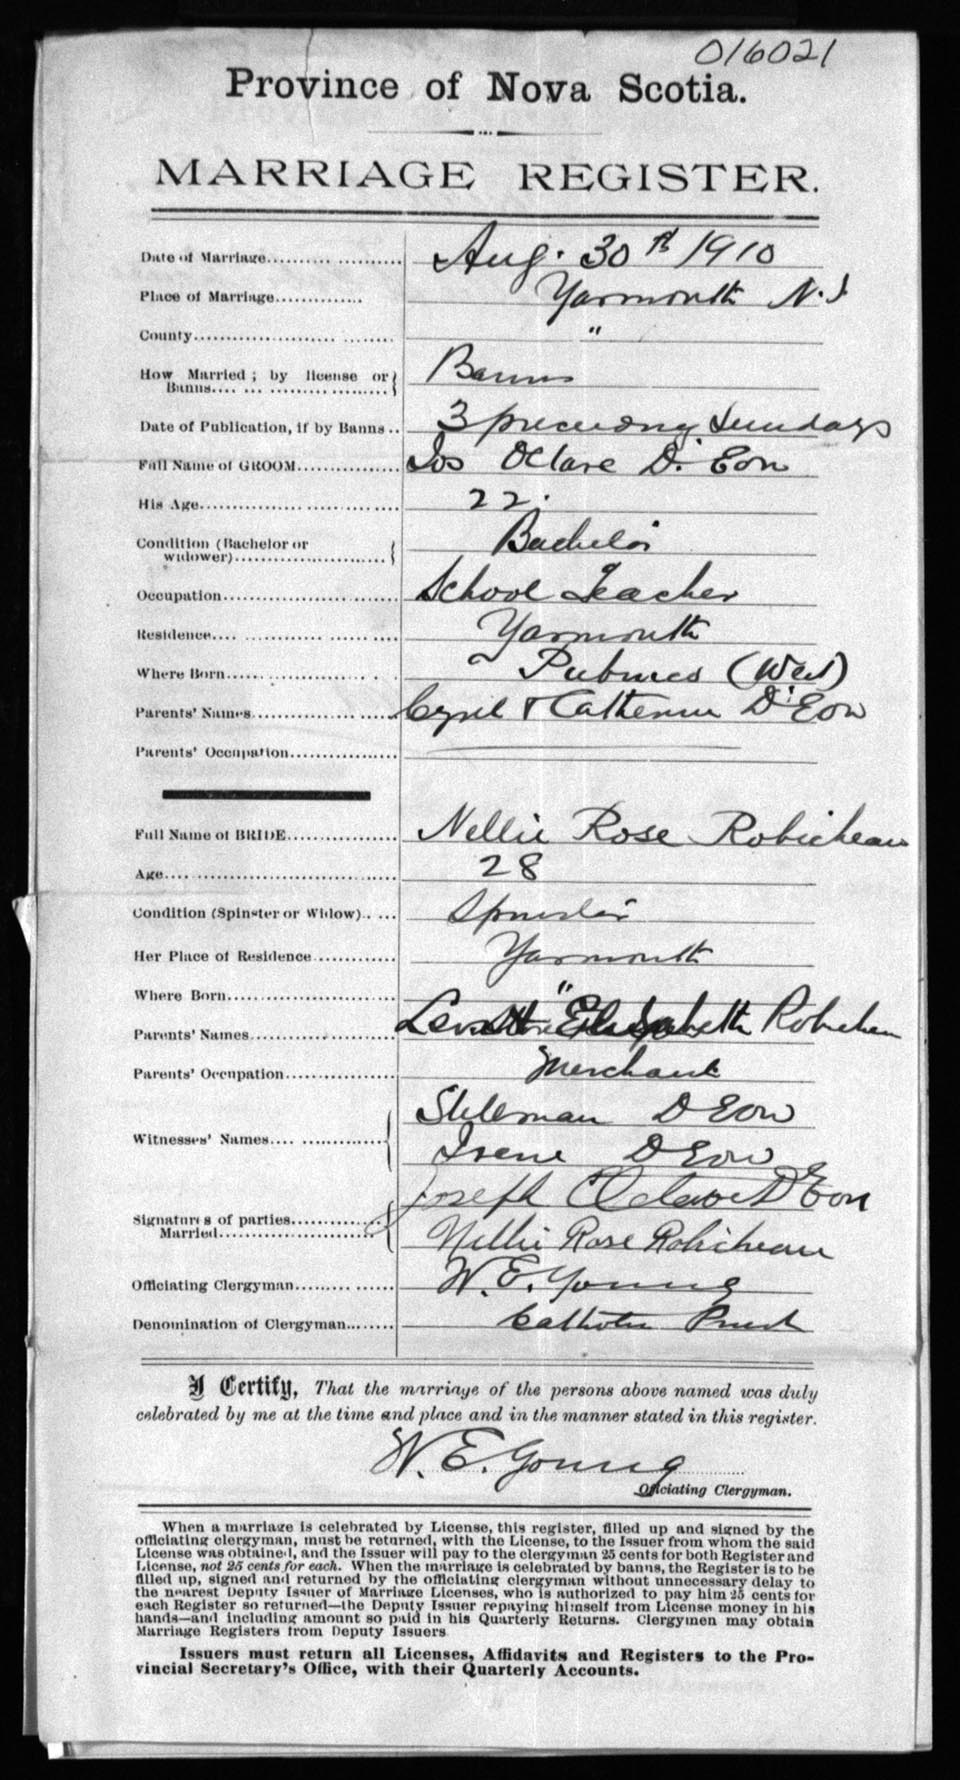 016021
Province of Nova Scotia.
MARRIAGE REGISTER.
Date of Marriage Aug. 30th 1910
Place of Marriage Yarmouth N.S
County "
How Married; by license or Banns Banns
Date of Publication, if by Banns 3 preceding Sundays
Full Name of GROOM Jos Octave D'Eon
His Age 22.
Condition (Bachelor or widower) Bachelor
Occupation School Teacher
Residence Yarmouth
Where Born Pubnico (West)
Parents' Names Cyril & Catherine D'Eon
Parents' Occupation
Full Name of BRIDE Nellie Rose Robicheau
Age 28
Condition (Spinster or Widow) Spinster
Her Place of Residence Yarmouth
Where Born "
Parents' Names Elizabeth Robicheau
Parents' Occupation Merchant
Witnesses' Names Stillman D Eon
Irene D Eon
Signatures of parties Married Joseph Octave D'Eon
Nellie Rose Robicheau
Officiating Clergyman W. E. Young
Denomination of Clergyman Catholic Priest
I Certify, That the marriage of the persons above named was duly
celebrated by me at the time and place and in the manner stated in this register.
W. E. Young
Officiating Clergyman.
When a marriage is celebrated by License, this register, filled up and signed by the
officiating clergyman, must be returned, with the License, to the Issuer from whom the said
License was obtained, and the Issuer will pay to the clergyman 25 cents for both Register and
License, not 25 cents for each. When the marriage is celebrated by banns, the Register is to be
filled up, signed and returned by the officiating clergyman without unnecessary delay to
the nearest Deputy Issuer of Marriage Licenses, who is authorized to pay him 25 cents for
each Register so returned—the Deputy Issuer repaying himself from License money in his
hands—and including amount so paid in his Quarterly Returns. Clergymen may obtain
Marriage Registers from Deputy Issuers
Issuers must return all Licenses, Affidavits and Registers to the Pro-
vincial Secretary's Office, with their Quarterly Accounts.